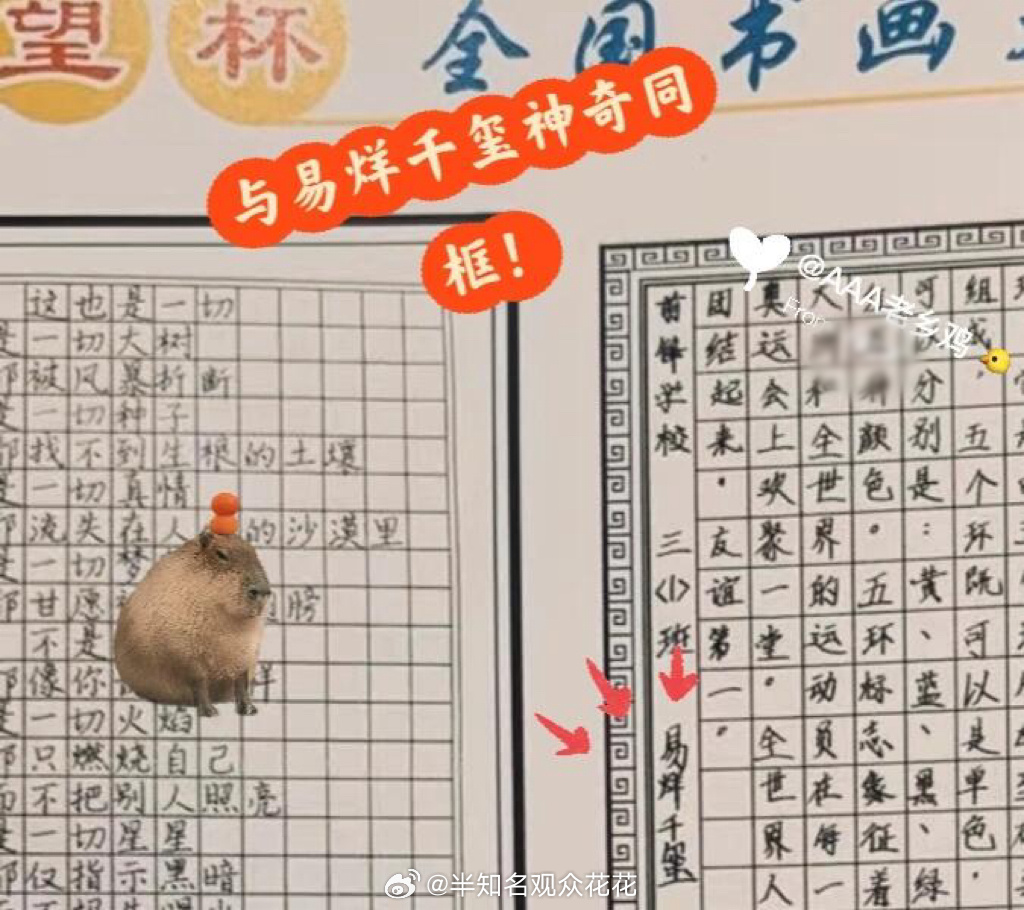 望杯 全国书画
与易烊千玺神奇同
框！
@AAA老乡鸡
这也是一切
是一切大树
都被风暴折断
是一切种子
都找不到生根的土壤
是一切真情
都流失在人的沙漠里
是一切梦
都甘愿膀
不是
都像你样
是一切火焰
都只燃烧自己
而不把别人照亮
是一切星星
都仅指示黑暗
组成，五个环既可以是单色，
河分别是：黄、蓝、黑、绿
颜色。五环标志象征着
大和全世界的运动员在每一
奥运会上欢聚一堂。全世界人
团结起来，友谊第一。
前锋学校 三（1）班 易烊千玺
@半知名观众花花